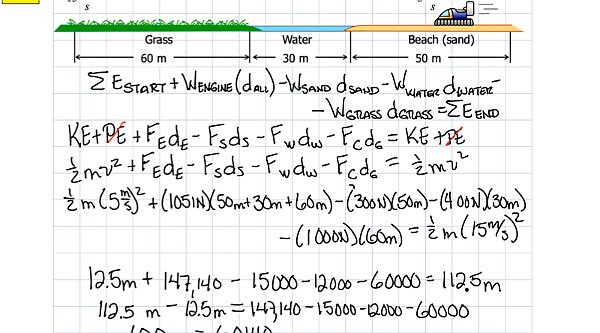 s s
Grass Water Beach (sand)
60 m 30 m 50 m
ΣE_START + W_ENGINE(d_ALL) - W_SAND d_SAND - W_WATER d_WATER -
- W_GRASS d_GRASS = ΣE_END
KE + PE + F_E d_E - F_S d_S - F_W d_W - F_G d_G = KE + PE
½mv² + F_E d_E - F_S d_S - F_W d_W - F_G d_G = ½mv²
½m(5 m/s)² + (1051N)(50m+30m+60m) - (300N)(50m) - (400N)(30m)
- (1000N)(60m) = ½m(15 m/s)²
12.5m + 147,140 - 15000 - 12000 - 60000 = 112.5m
112.5m - 12.5m = 147,140 - 15000 - 12000 - 60000